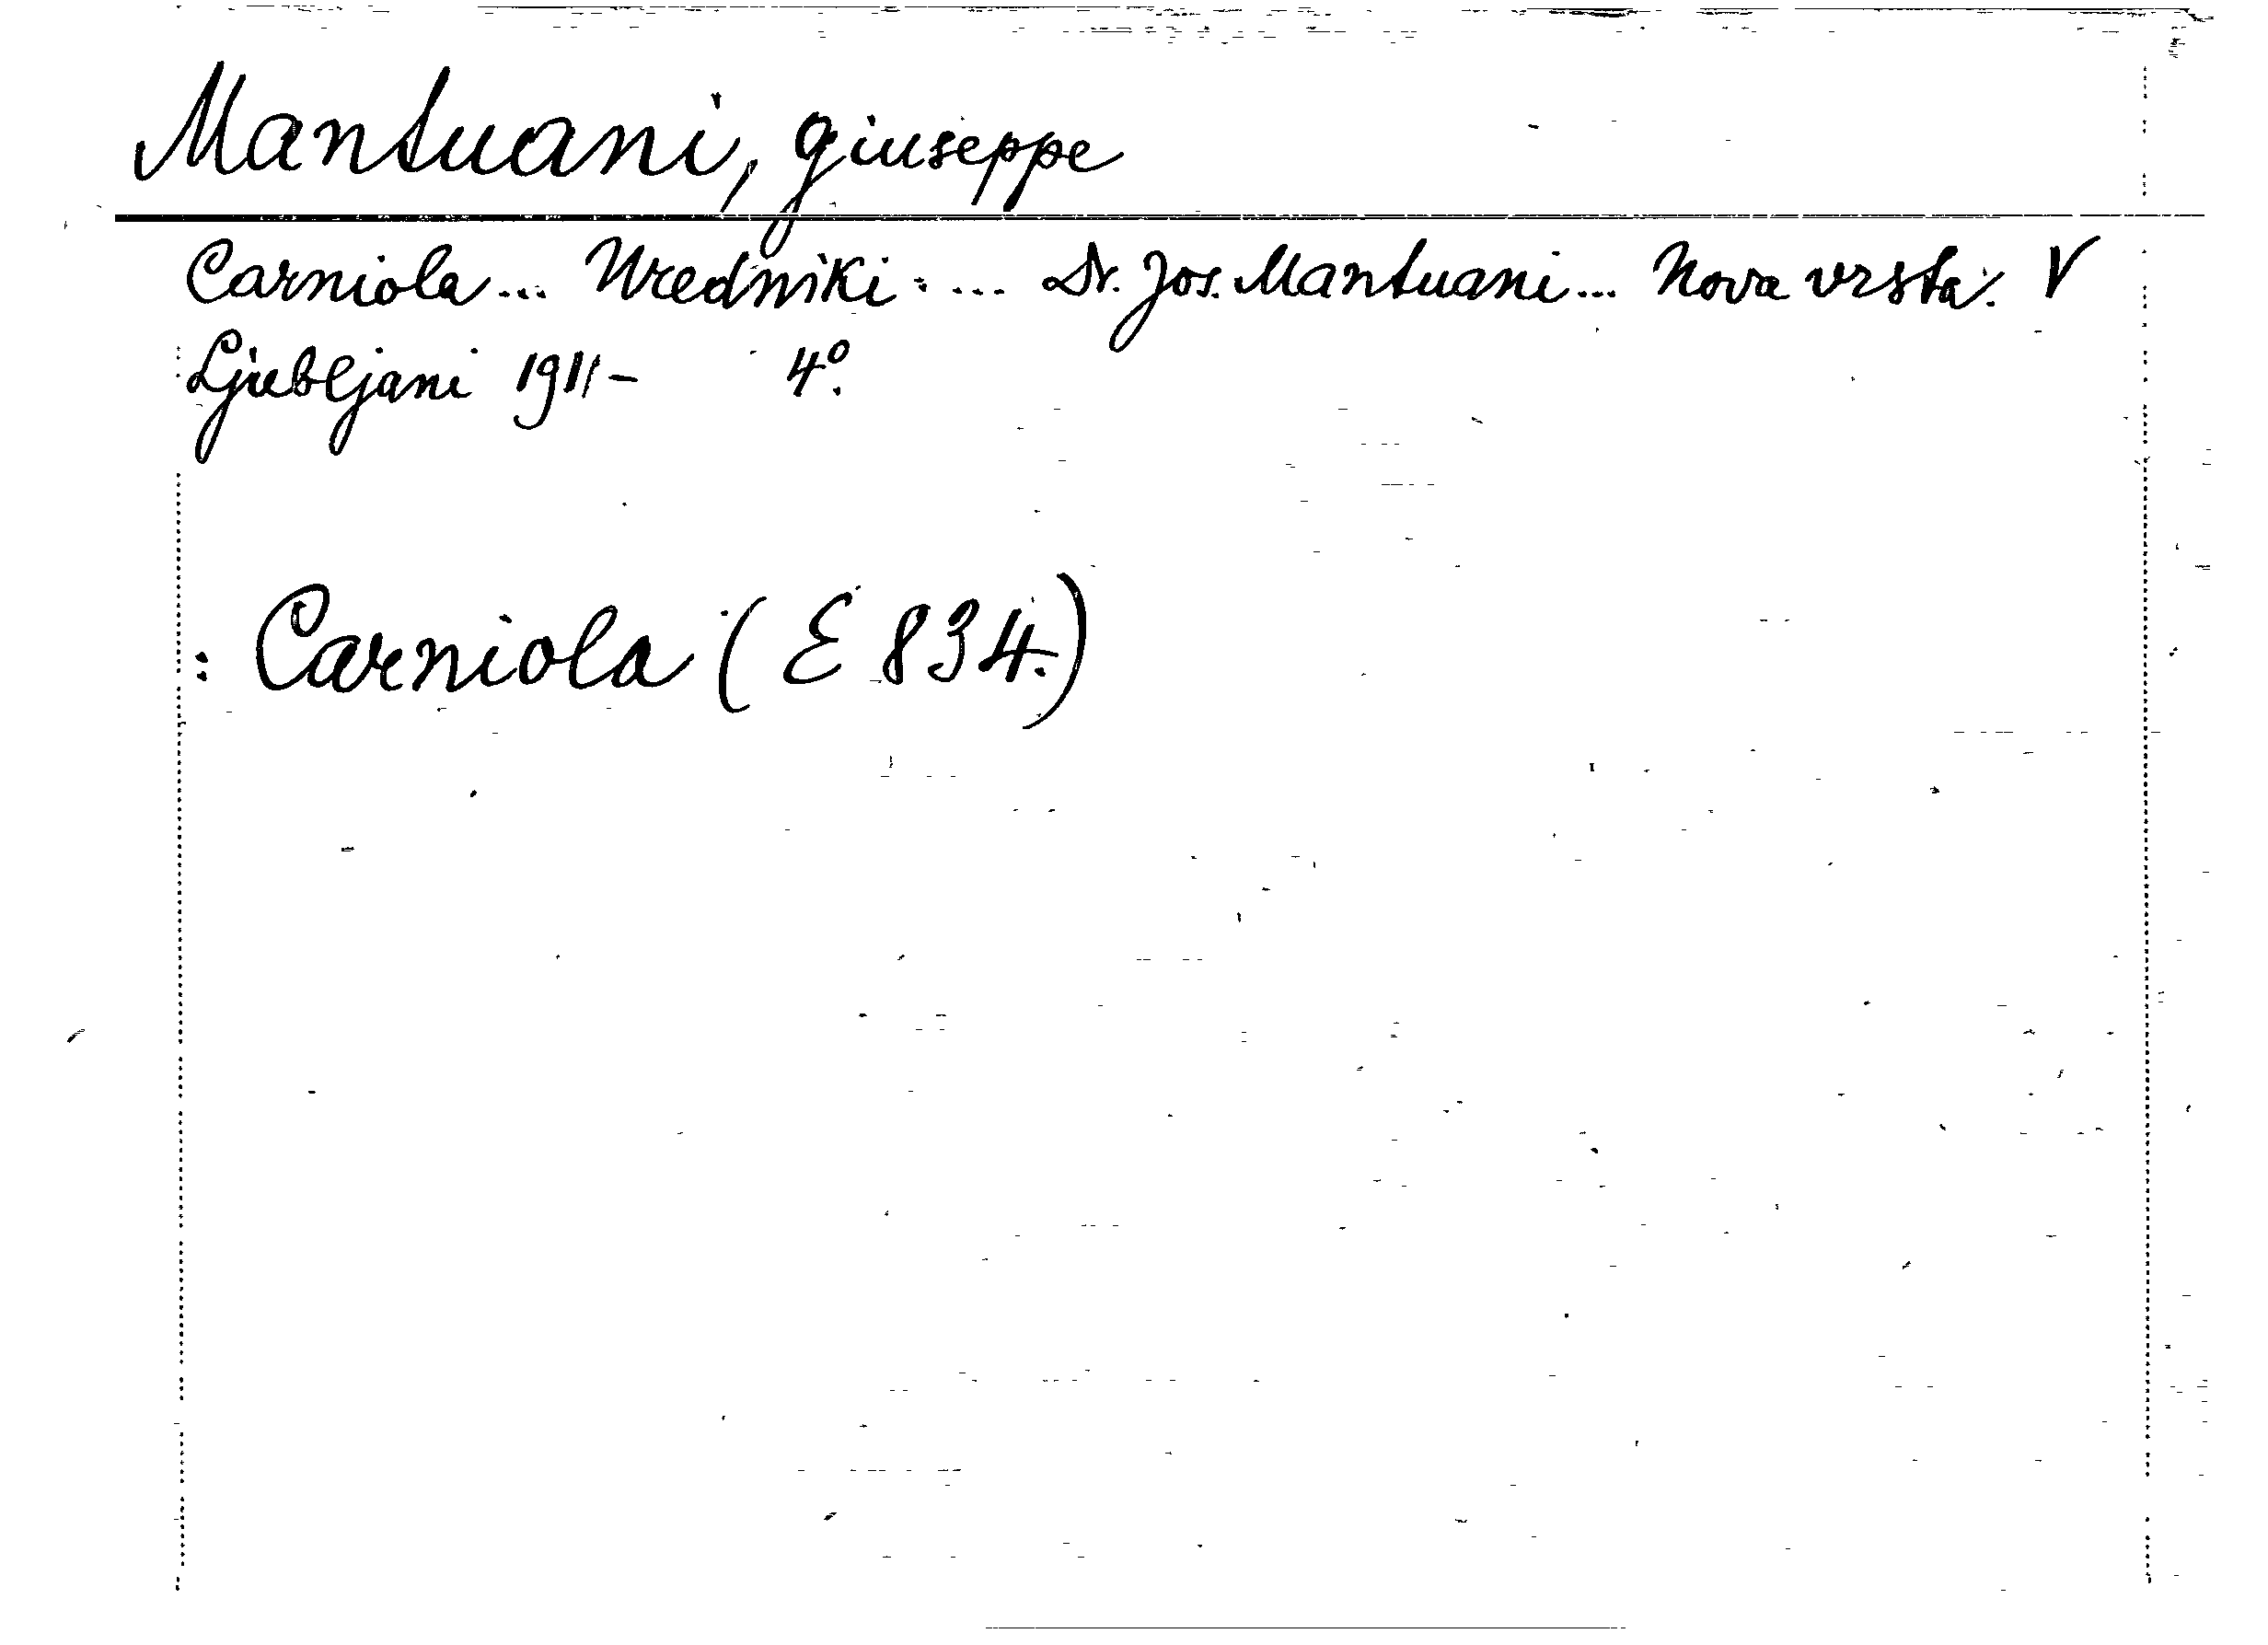 Mantuani, Giuseppe
Carniola... Uredniki: ... Dr. Jos. Mantuani... Nova vrsta. V
Ljubljani 1911- 4º.
: Carniola (E 834.)